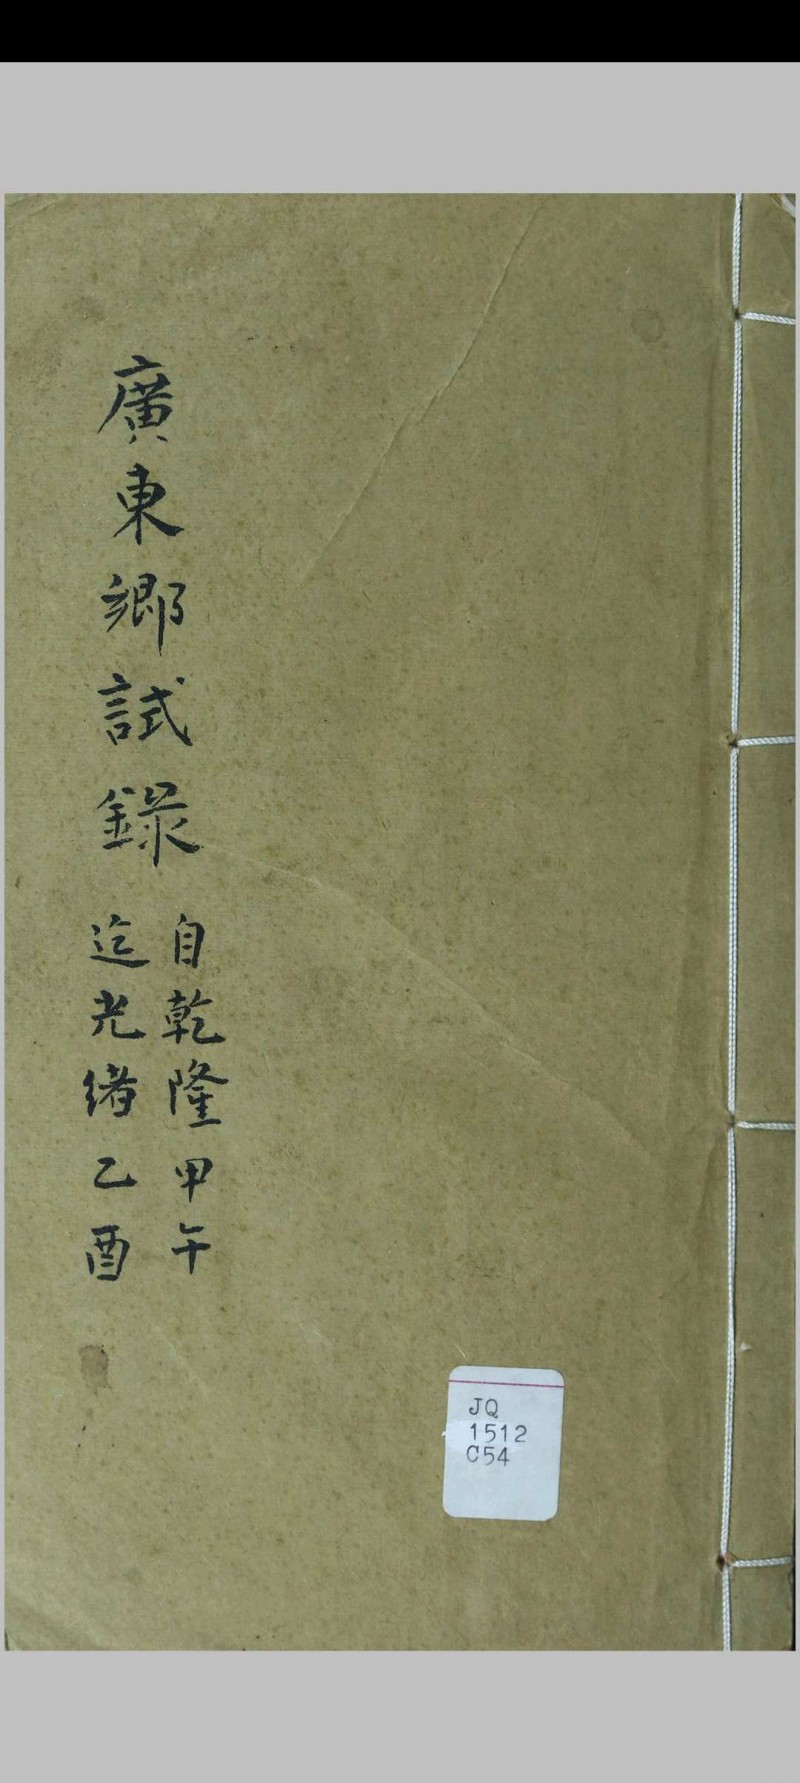 廣東鄉試錄
自乾隆甲午
迄光緒乙酉
JQ
1512
C54